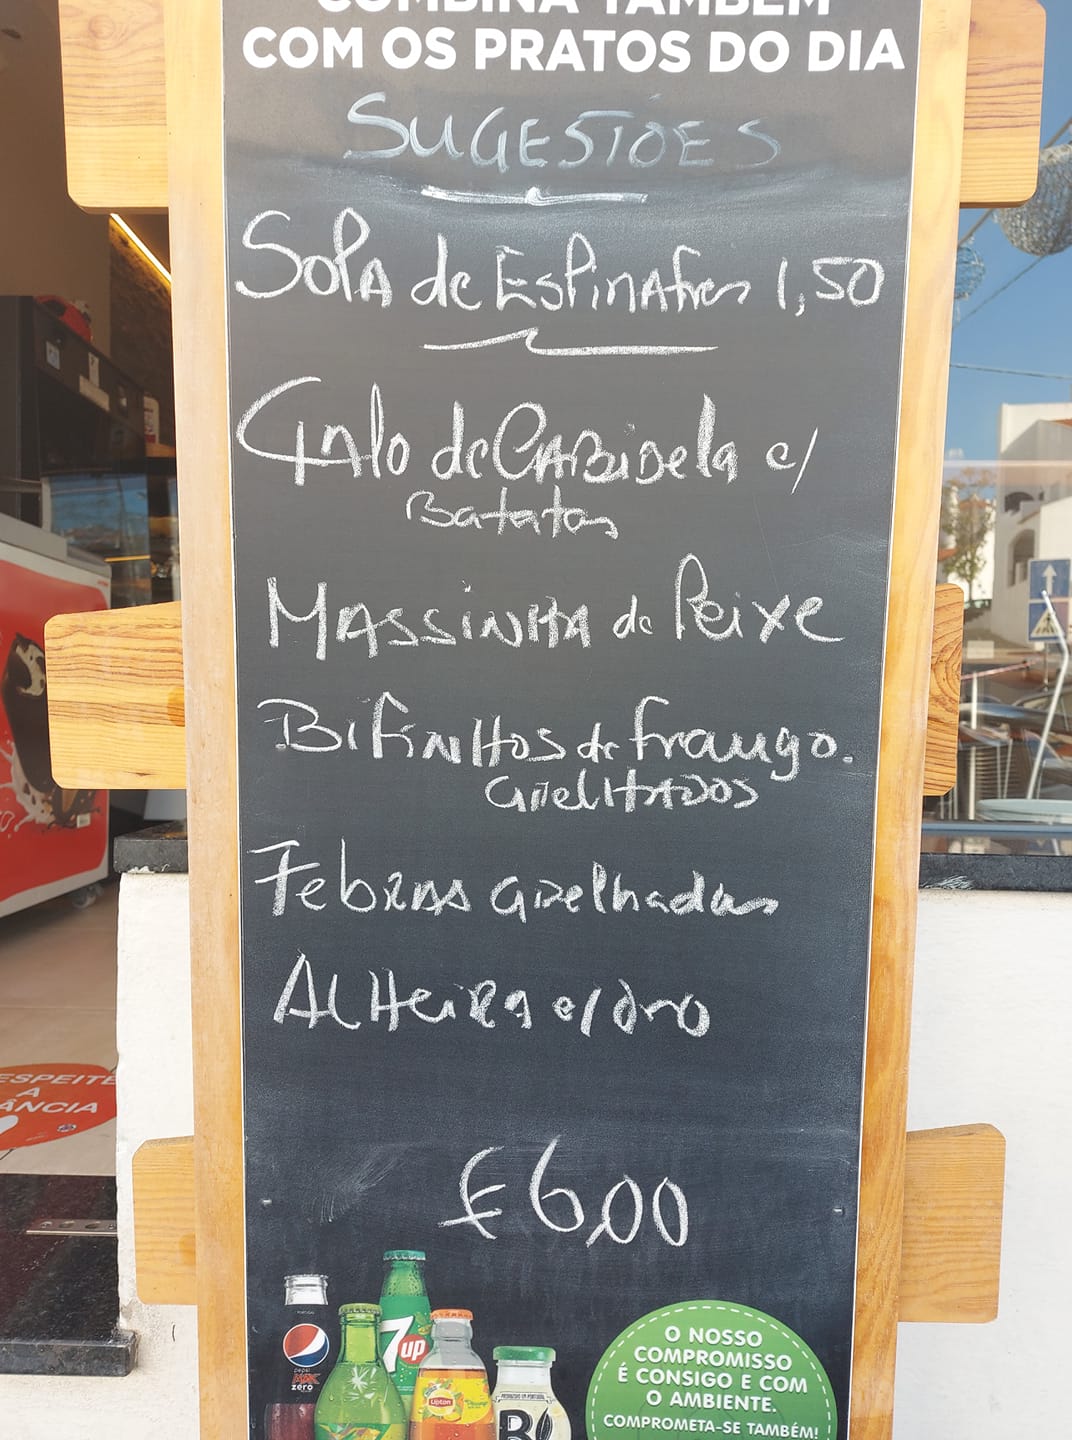 COMBINA TAMBÉM
COM OS PRATOS DO DIA
SUGESTÕES
Sopa de Espinafres 1,50
Galo de Cabidela c/
Batatas
Massinha de Peixe
Bifinhos de frango.
Grelhados
Febras Grelhadas
Alheira c/ ovo
€6,00
ESPEITE
A
ÂNCIA
pepsi
MAX
zero
7up
Lipton
B!
O NOSSO
COMPROMISSO
É CONSIGO E COM
O AMBIENTE.
COMPROMETA-SE TAMBÉM!